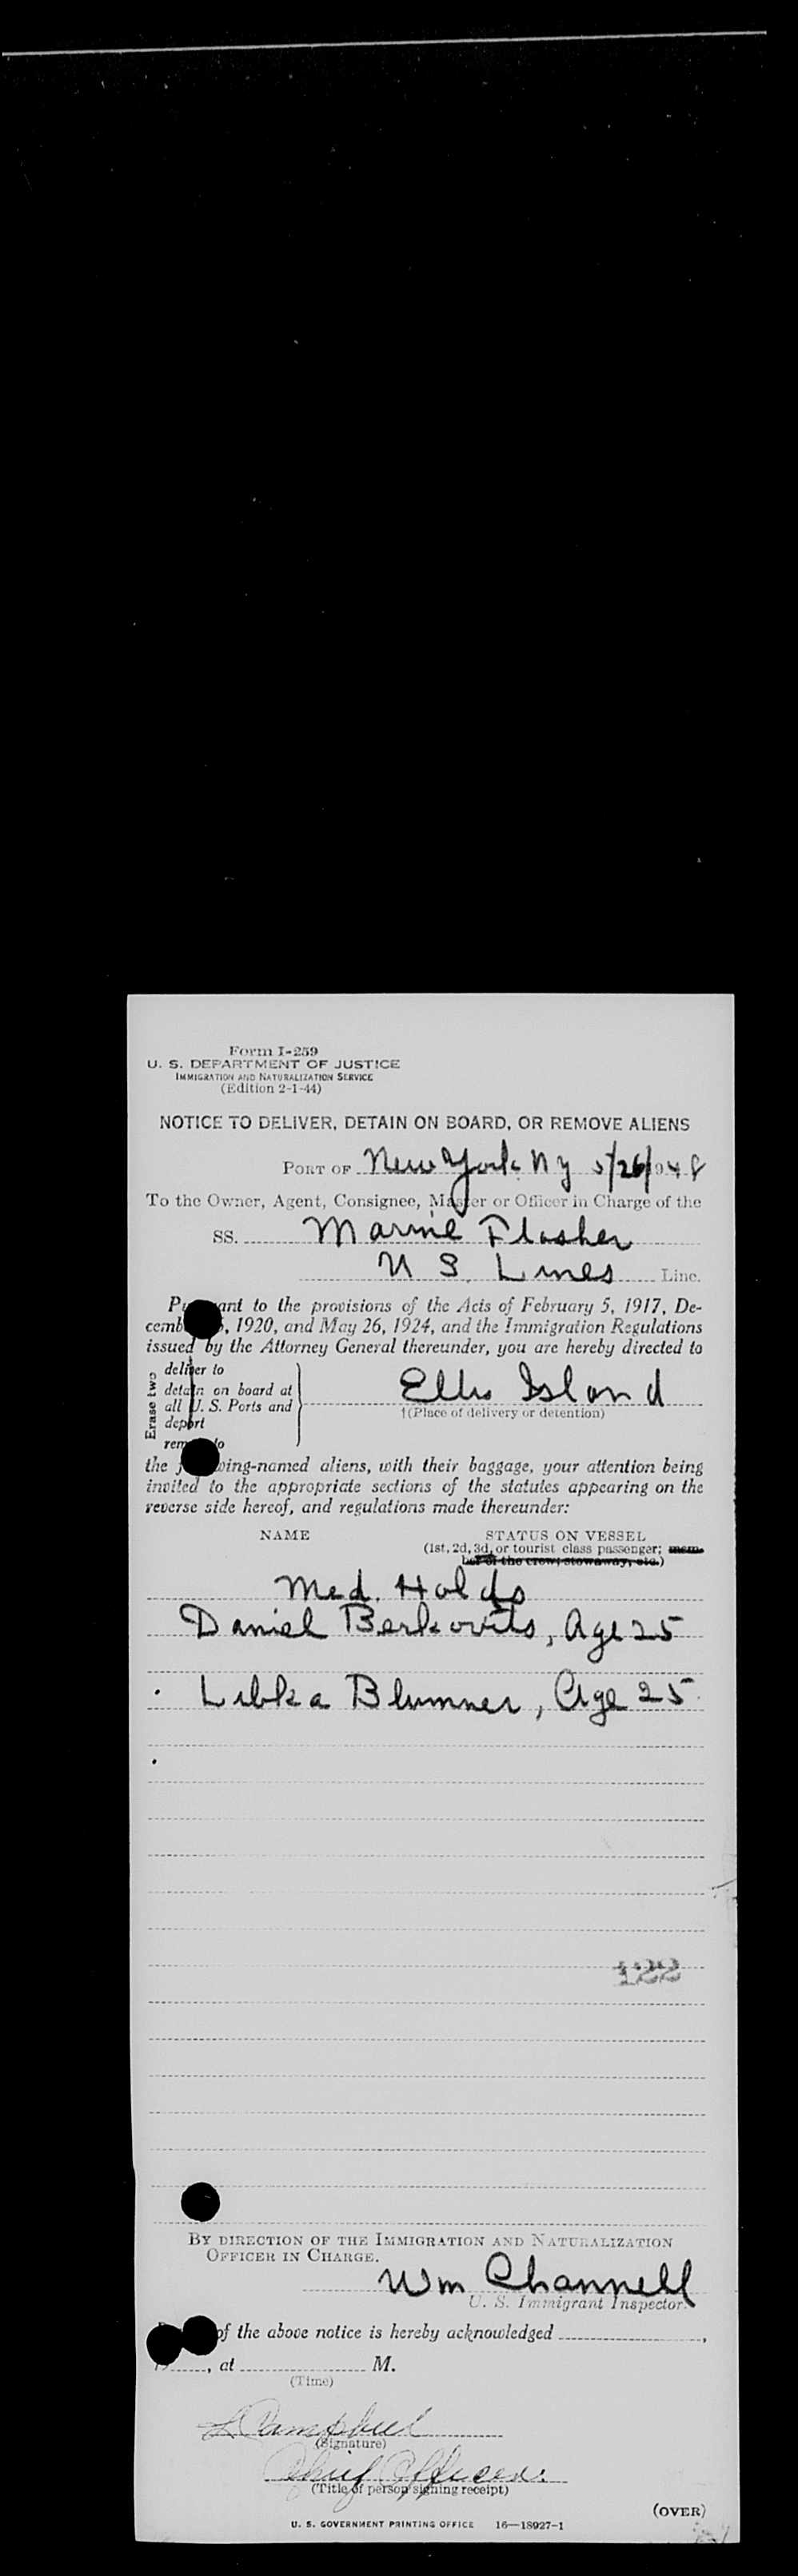 Form I-259
U. S. DEPARTMENT OF JUSTICE
IMMIGRATION AND NATURALIZATION SERVICE
(Edition 2-1-44)
NOTICE TO DELIVER, DETAIN ON BOARD, OR REMOVE ALIENS
PORT OF New York NY 5/26/948
To the Owner, Agent, Consignee, Master or Officer in Charge of the
SS. Marine Flasher
U S. Lines Line.
to the provisions of the Acts of February 5, 1917, De-
, 1920, and May 26, 1924, and the Immigration Regulations
issued by the Attorney General thereunder, you are hereby directed to
Erase two
deliver to
detain on board at
all U. S. Ports and
deport
Ellis Island
†(Place of delivery or detention)
the following-named aliens, with their baggage, your attention being
invited to the appropriate sections of the statutes appearing on the
reverse side hereof, and regulations made thereunder:
NAME STATUS ON VESSEL
(1st, 2d, 3d, or tourist class passenger; mem-
ber of the crew; stowaway, etc.)
Med. Holds
Daniel Berkovits, Age 25
Libka Blumner, Age 25
122
BY DIRECTION OF THE IMMIGRATION AND NATURALIZATION
OFFICER IN CHARGE.
Wm Channell
U. S. Immigrant Inspector.
of the above notice is hereby acknowledged ,
, at M.
(Time)
L Campbell
(Signature)
Chief Officer.
(Title of person signing receipt)
(OVER)
U. S. GOVERNMENT PRINTING OFFICE 16—18927-1